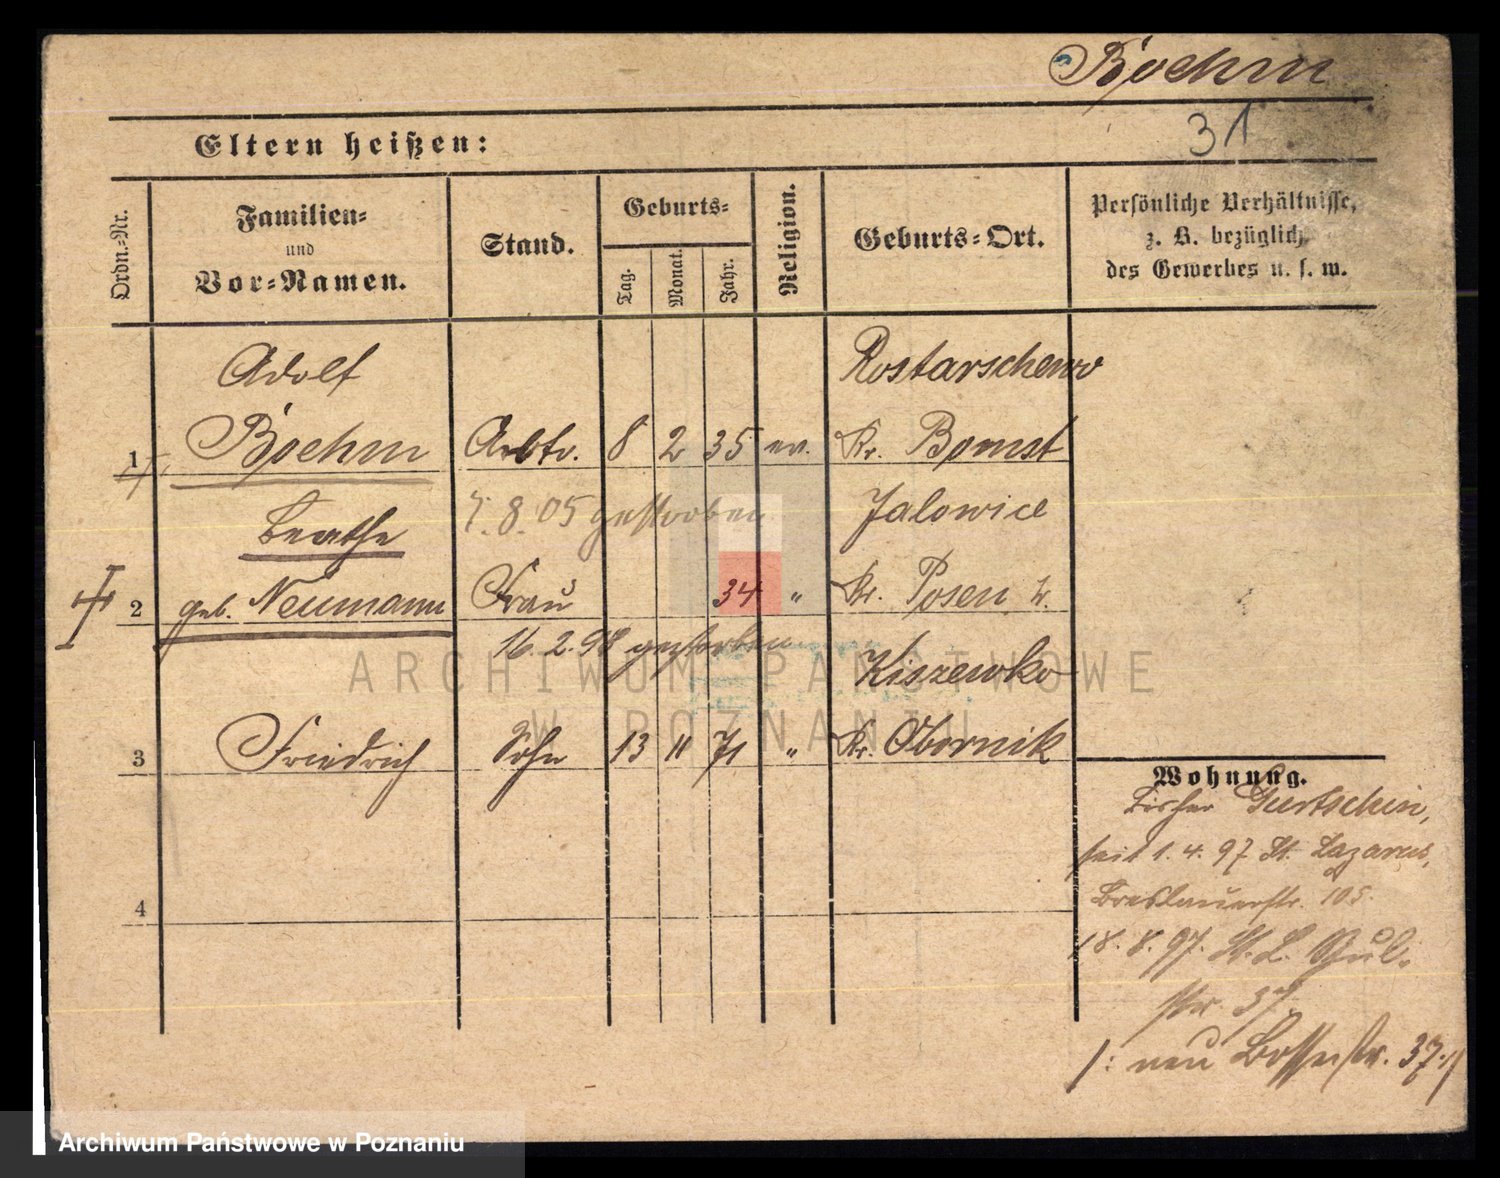 Boehm
31
Eltern heißen:
Ordn.=Nr.
Familien=
und
Vor=Namen.
Stand.
Geburts=
Tag.
Monat.
Jahr.
Religion.
Geburts=Ort.
Persönliche Verhältnisse,
z. B. bezüglich
des Gewerbes u. s. w.
Adolf
Rostarschewo
1 Boehm Arbtr. 8 2 35 ev. Kr. Bomst
7.8.05 gestorben
Berthe
Jalowice
2 geb. Neumann Frau 34 " Kr. Posen W.
16.2.98 gestorben
Kiszewko
3 Friedrich Sohn 13 11 71 " Kr. Obornik
4
Wohnung.
Bisher Gurtschin,
seit 1.4.97 St. Lazarus,
Breslauerstr. 105.
18.8.97. St. L.
str. 37.
/: neu 37 :/
ARCHIWUM PAŃSTWOWE
W POZNANIU
Archiwum Państwowe w Poznaniu